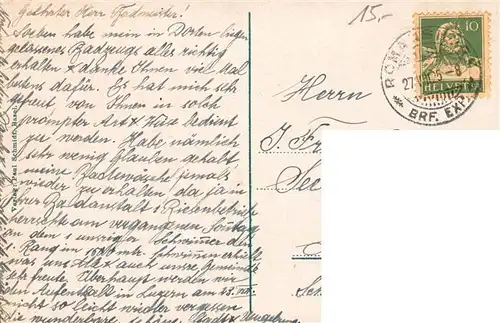 Geehrter Herr Bademeister!
Soeben habe mein in Dorten liegen
gelassenes Badzeugs alles richtig
erhalten & danke Ihnen viel mal
bestens dafür. Es hat mich sehr
gefreut von Ihnen in solch
prompter Art & Weise bedient
zu werden. Habe nämlich
sehr wenig Glauben gehabt,
meine Badewäsche jemals
wieder zu erhalten, da ja in
Ihrer Badanstalt 1 Riesenbetrieb
herrschte am vergangenen Sonntag
an dem 1 unsriger Schwimmer den
Rang im mtr. schwimmen erhielt
was uns Alle & auch unsre Gemeinde
sehr freute. Überhaupt werden wir
den Aufenthalt in Luzern am 23.
nicht so leicht wieder vergessen
die wunderbare Stadt & Umgebung
Verlag: Paul Schmidt,
15.-
Herrn
J.
See
10
HELVETIA
ROMA
27
8
BRF. EXP.